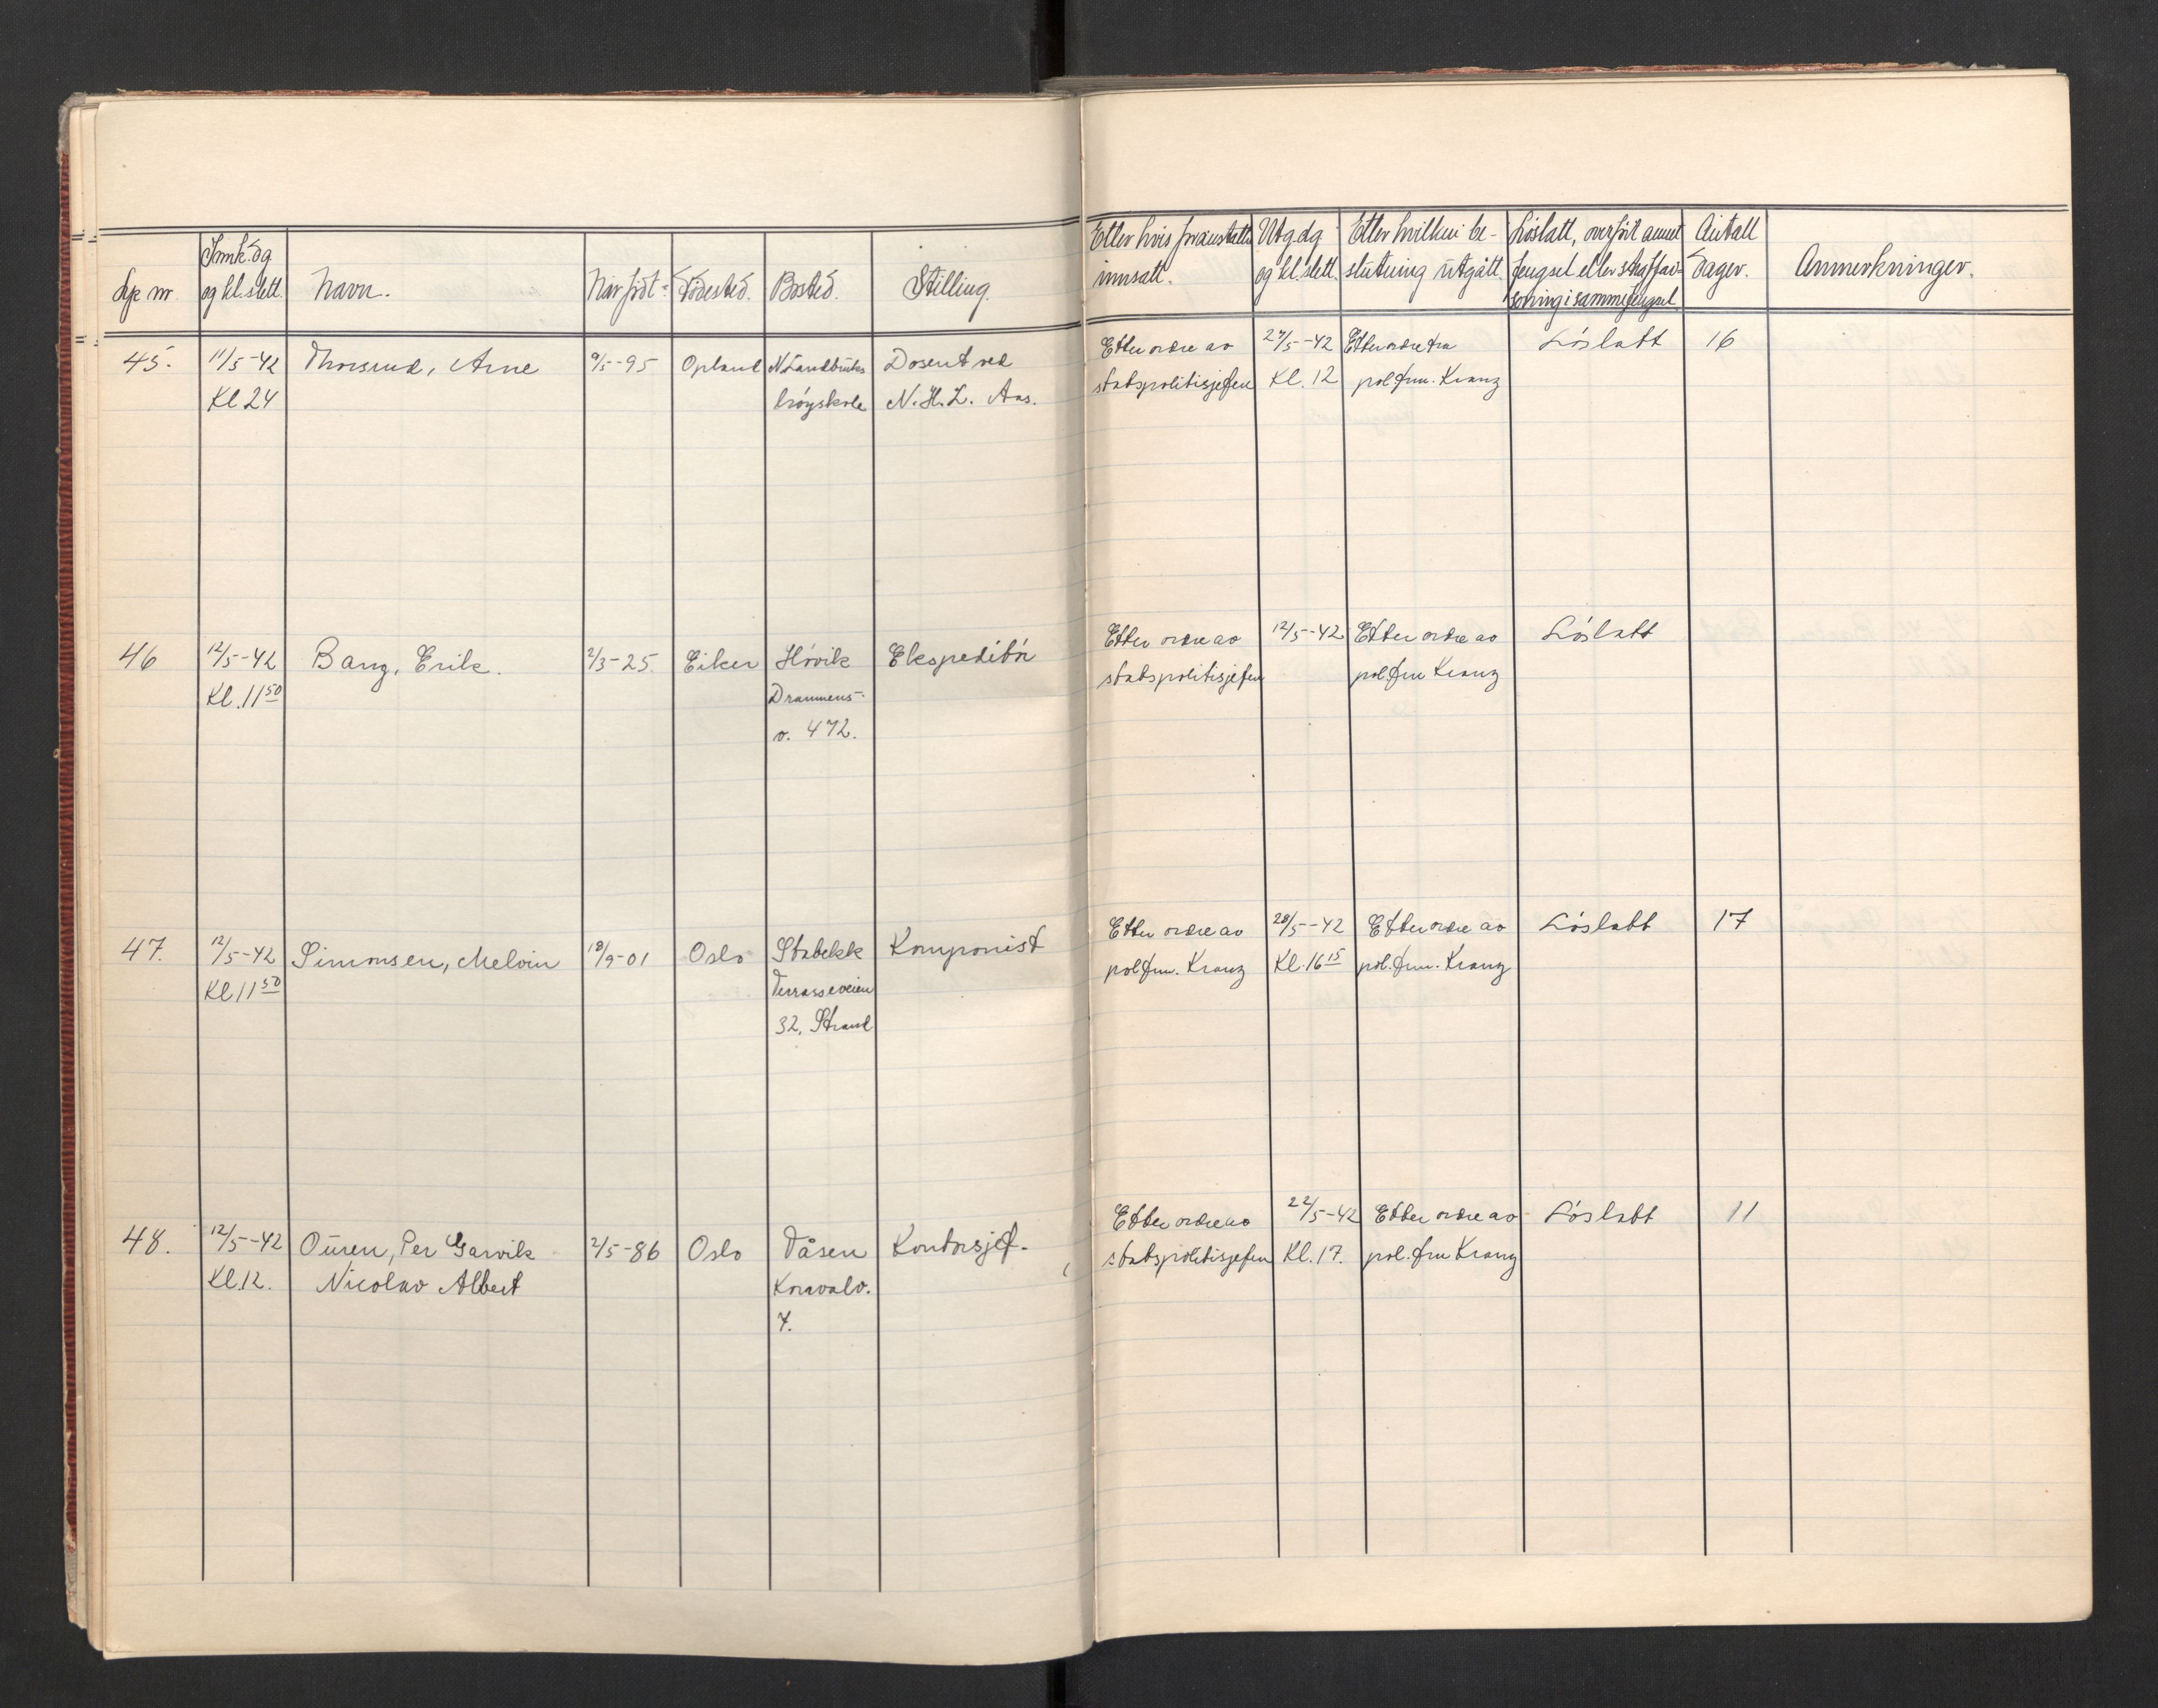 Lp. nr. Innk. dg. og kl.slett. Navn. Når født. Fødested. Bosted. Stilling. Etter hvis foranstaltn. innsatt. Utg.dg og kl.slett. Etter hvilken be-slutning utgått. Løslatt, overført annet fengsel eller straffav-soning i samme fengsel Antall dager. Anmerkninger.
45. 11/5-42 Thorsrud, Arne 9/5-95 Opland N Landbruks Dosent ved Etter ordre av 27/5-42 Etter ordre fra Løslatt 16
Kl 24 høgskole N.H.L. Aas. statspolitisjefen Kl. 12 pol.fm. Kranz
46 12/5-42 Bang, Erik. 2/3-25. Eiker Høvik Ekspeditør Etter ordre av 12/5-42 Etter ordre av Løslatt
Kl. 11 50 Drammens- statspolitisjefen pol.fm Kranz
v. 472.
47. 12/5-42 Simonsen, Melvin 18/9-01 Oslo Stabekk Komponist Etter ordre av 28/5-42 Etter ordre av Løslatt 17
Kl 11 50 Terrasseveien pol.fm. Kranz Kl. 16 15 pol.fm. Kranz
32, Strand
48. 12/5-42 Ouren, Per Garvik 2/5-86 Oslo Tåsen Kontorsjef. Etter ordre av 22/5-42 Etter ordre av Løslatt 11
Kl.12. Nicolav Albert Konvalv. statspolitisjefen Kl. 17. pol.fm Kranz
7.